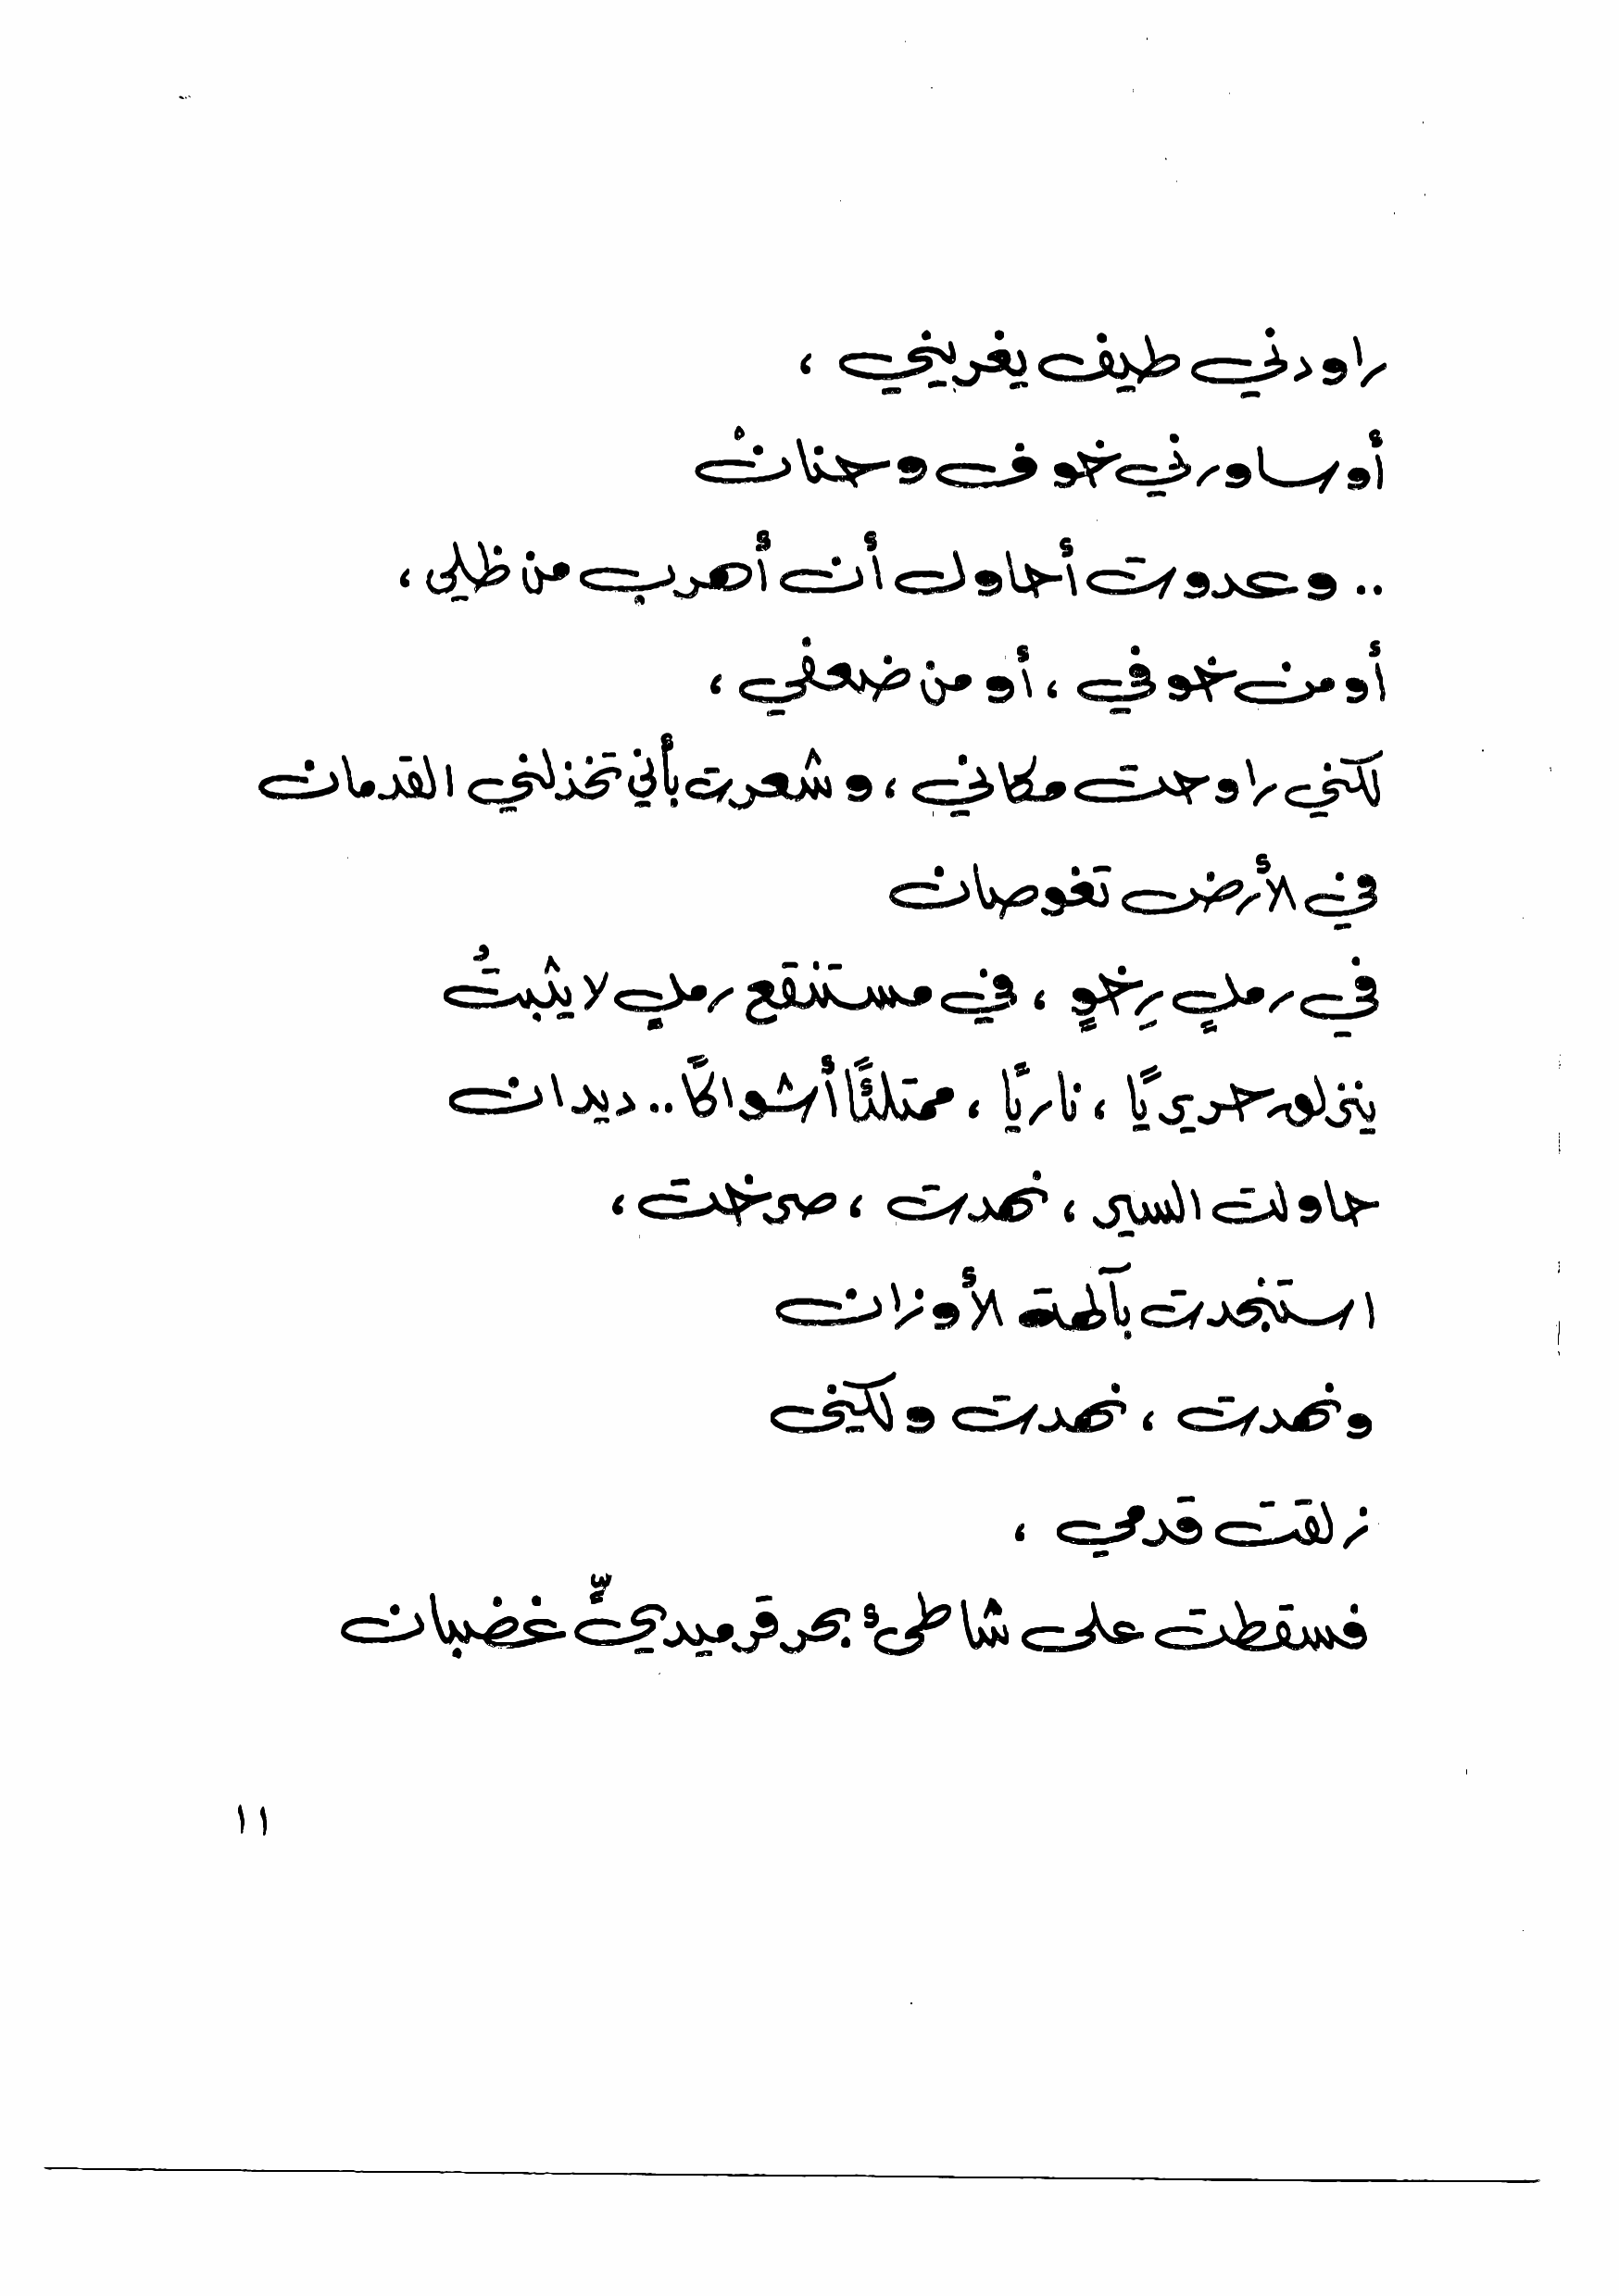 راودني طيف يغريني ،
أو ساورني خوف وحنانْ
.. وعدوت أحاول أن أهرب من ظلي ،
أو من خوفي ، أو من ضعفي ،
لكني راوحت مكاني ، وشعرت بأني تخذلني القدمان
في الأرض تغوصان
في رملٍ رِخوٍ ، في مستنقع رملٍ لا يثبتُ
ينزلق حريريًا ، ناريًا ، ممتلئًا أشواكًا .. ديدان
حاولت السير ، نهدت ، صرخت ،
استنجدت بآلهة الأوزان
ونهدت ، نهدت ولكني
زلقت قدمي ،
فسقطت على شاطئ بحر قرميديٍّ غضبان
١١